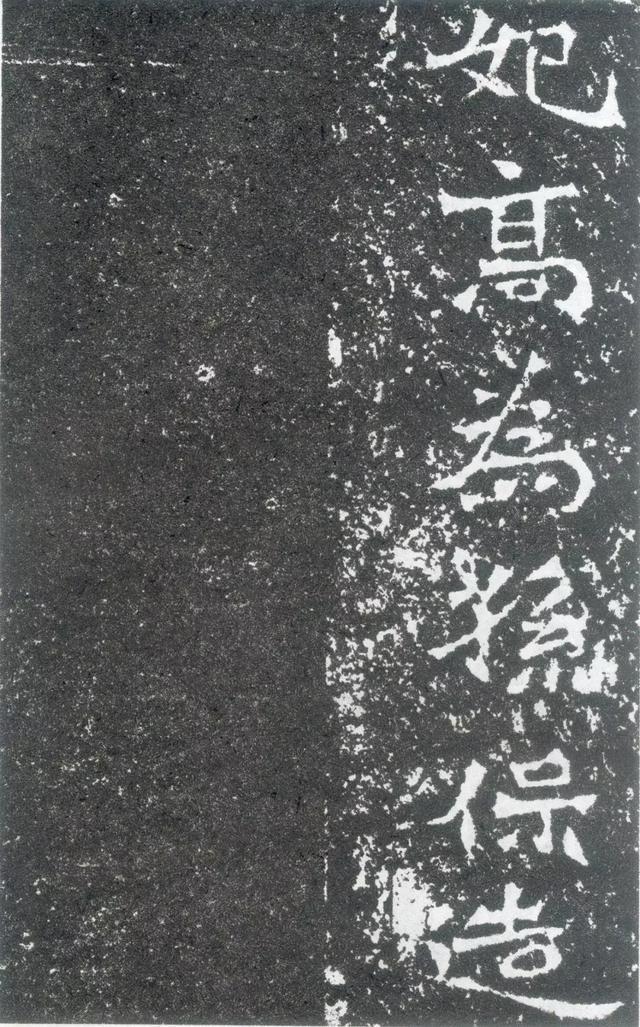 妃高為孫保造